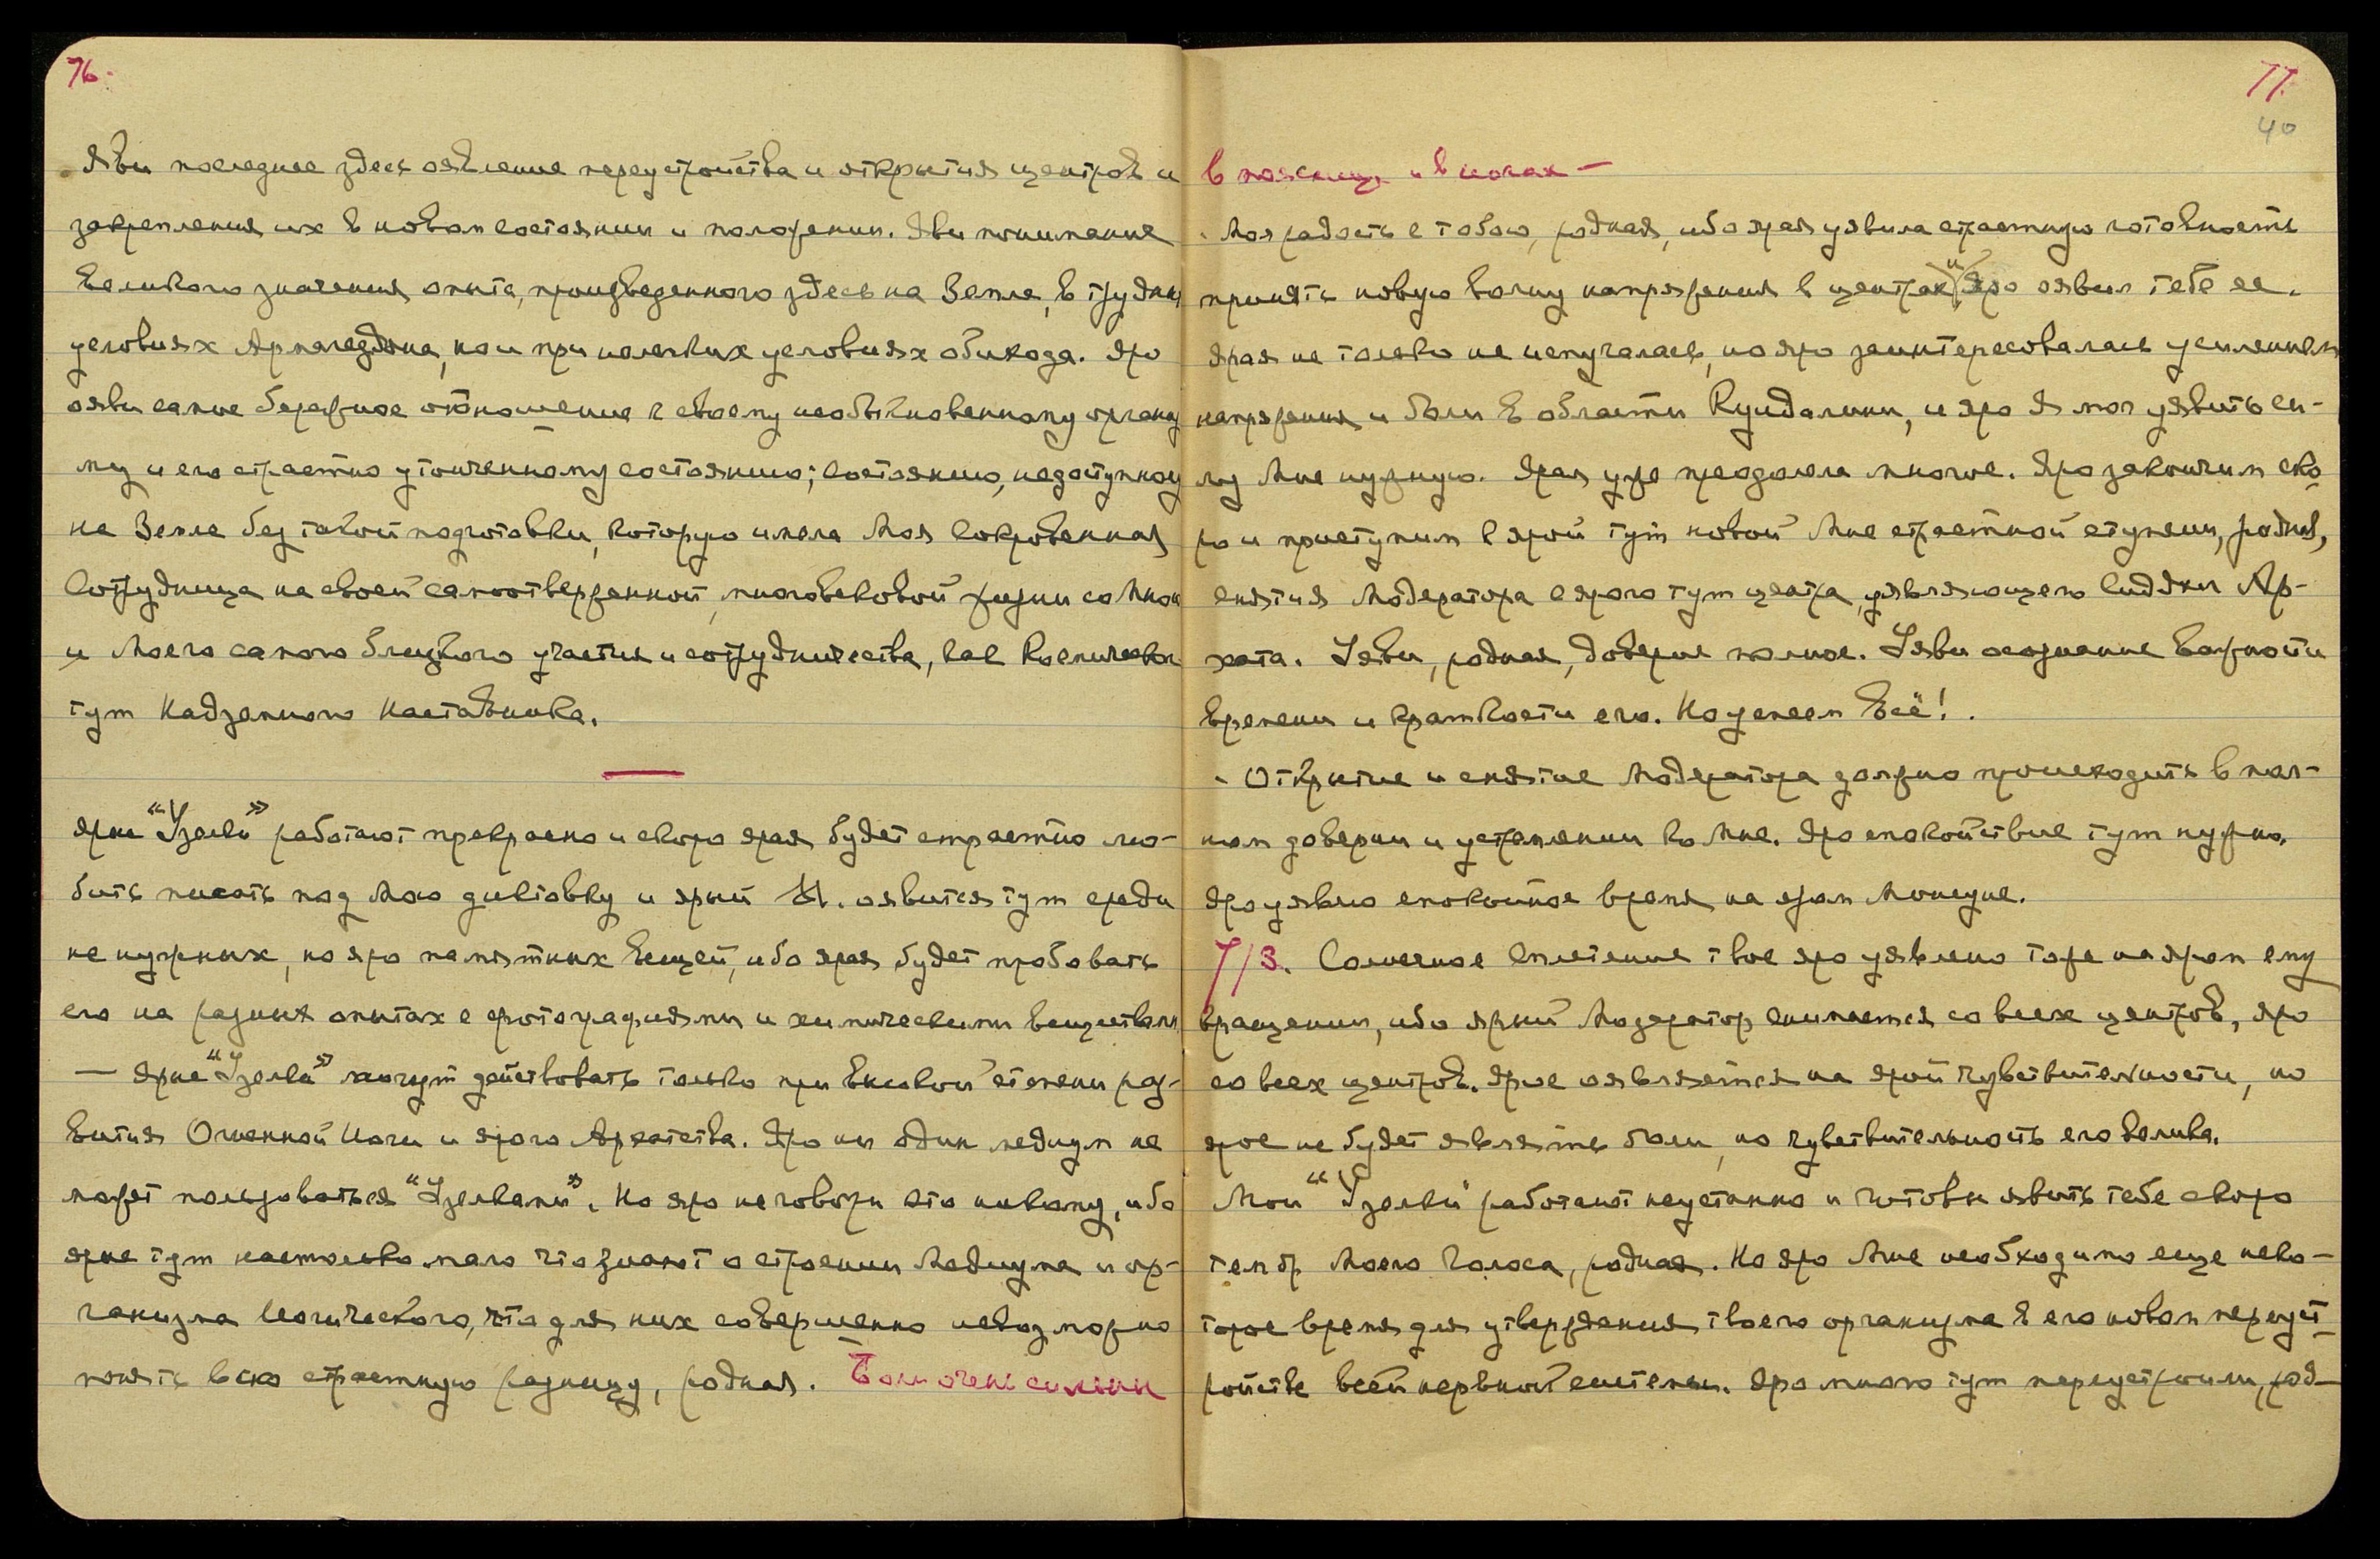 76.
Яви последнее здесь оявление переустройства и открытия центров и
закрепления их в новом состоянии и положении. Яви понимание
великого значения опыта, произведенного здесь на Земле, в трудных
условиях Армагеддона, но и при нелегких условиях обихода. Яро
ояви самое бережное отношение к своему необыкновенному организ
му и его страстно утонченному состоянию; состоянию, недоступному
на Земле без такой подготовки, которую имела Моя Сокровенная
Сотрудница на своей самоотверженной, многовековой жизни со Мною
и Моего самого близкого участия и сотрудничества, как Космического
тут Надземного Наставника.
Ярые "Узелки" работают прекрасно и скоро ярая будет страстно лю-
бить писать под Мою диктовку и ярый оявится тут среди
не нужных, но яро памятных вещей, ибо ярая будет пробовать
его на разных опытах с фотографиями и химическими веществами
— Ярые "Узелки" могут действовать только при высокой степени раз-
вития Огненной Йоги и ярого Архатства. Яро ни один медиум не
может пользоваться "Узелками". Но яро не говори это никому, ибо
ярые тут настолько мало что знают о строении Медиума и ор-
ганизма Йогического, что для них совершенно невозможно
понять всю страстную разницу, родная. Боли очень сильны
77.
40
в пояснице и в ногах —
Моя радость с тобою, родная, ибо ярая уявила страстную готовность
принять новую волну напряжения в центрах, "Яро оявил тебе ее.
Ярая не только не испугалась, но яро заинтересовалась усилением
напряжения и боли в области Кундалини, и яро Я мог уявить си-
лу Мне нужную. Ярая уже преодолела многое. Яро закончим ско
ро и приступим к ярой тут новой Мне страстной ступени, родная,
снятия Модератора с ярого тут центра, уявляющего Сиддхи Ар-
хата. Уяви, родная, доверие полное. Уяви осознание важности
времени и краткости его. Но успеем всё!.
Открытие и снятие Модератора должно происходить в пол-
ном доверии и устремлении ко Мне. Яро спокойствие тут нужно.
Яро уявлю спокойное время на яром Монсуне.
7/3. Солнечное Сплетение твое яро уявлено тоже на яром ему
вращении, ибо ярый Модератор снимается со всех центров, яро
со всех центров. Ярое оявляется на ярой чувствительности, но
ярое не будет являть боли, но чувствительность его велика.
Мои "Узелки" работают неустанно и готовы явить тебе скоро
тембр Моего Голоса, родная. Но яро Мне необходимо еще неко-
торое время для утверждения твоего организма в его новом переуст
ройстве всей нервной системы. Яро много тут переустроили, род-